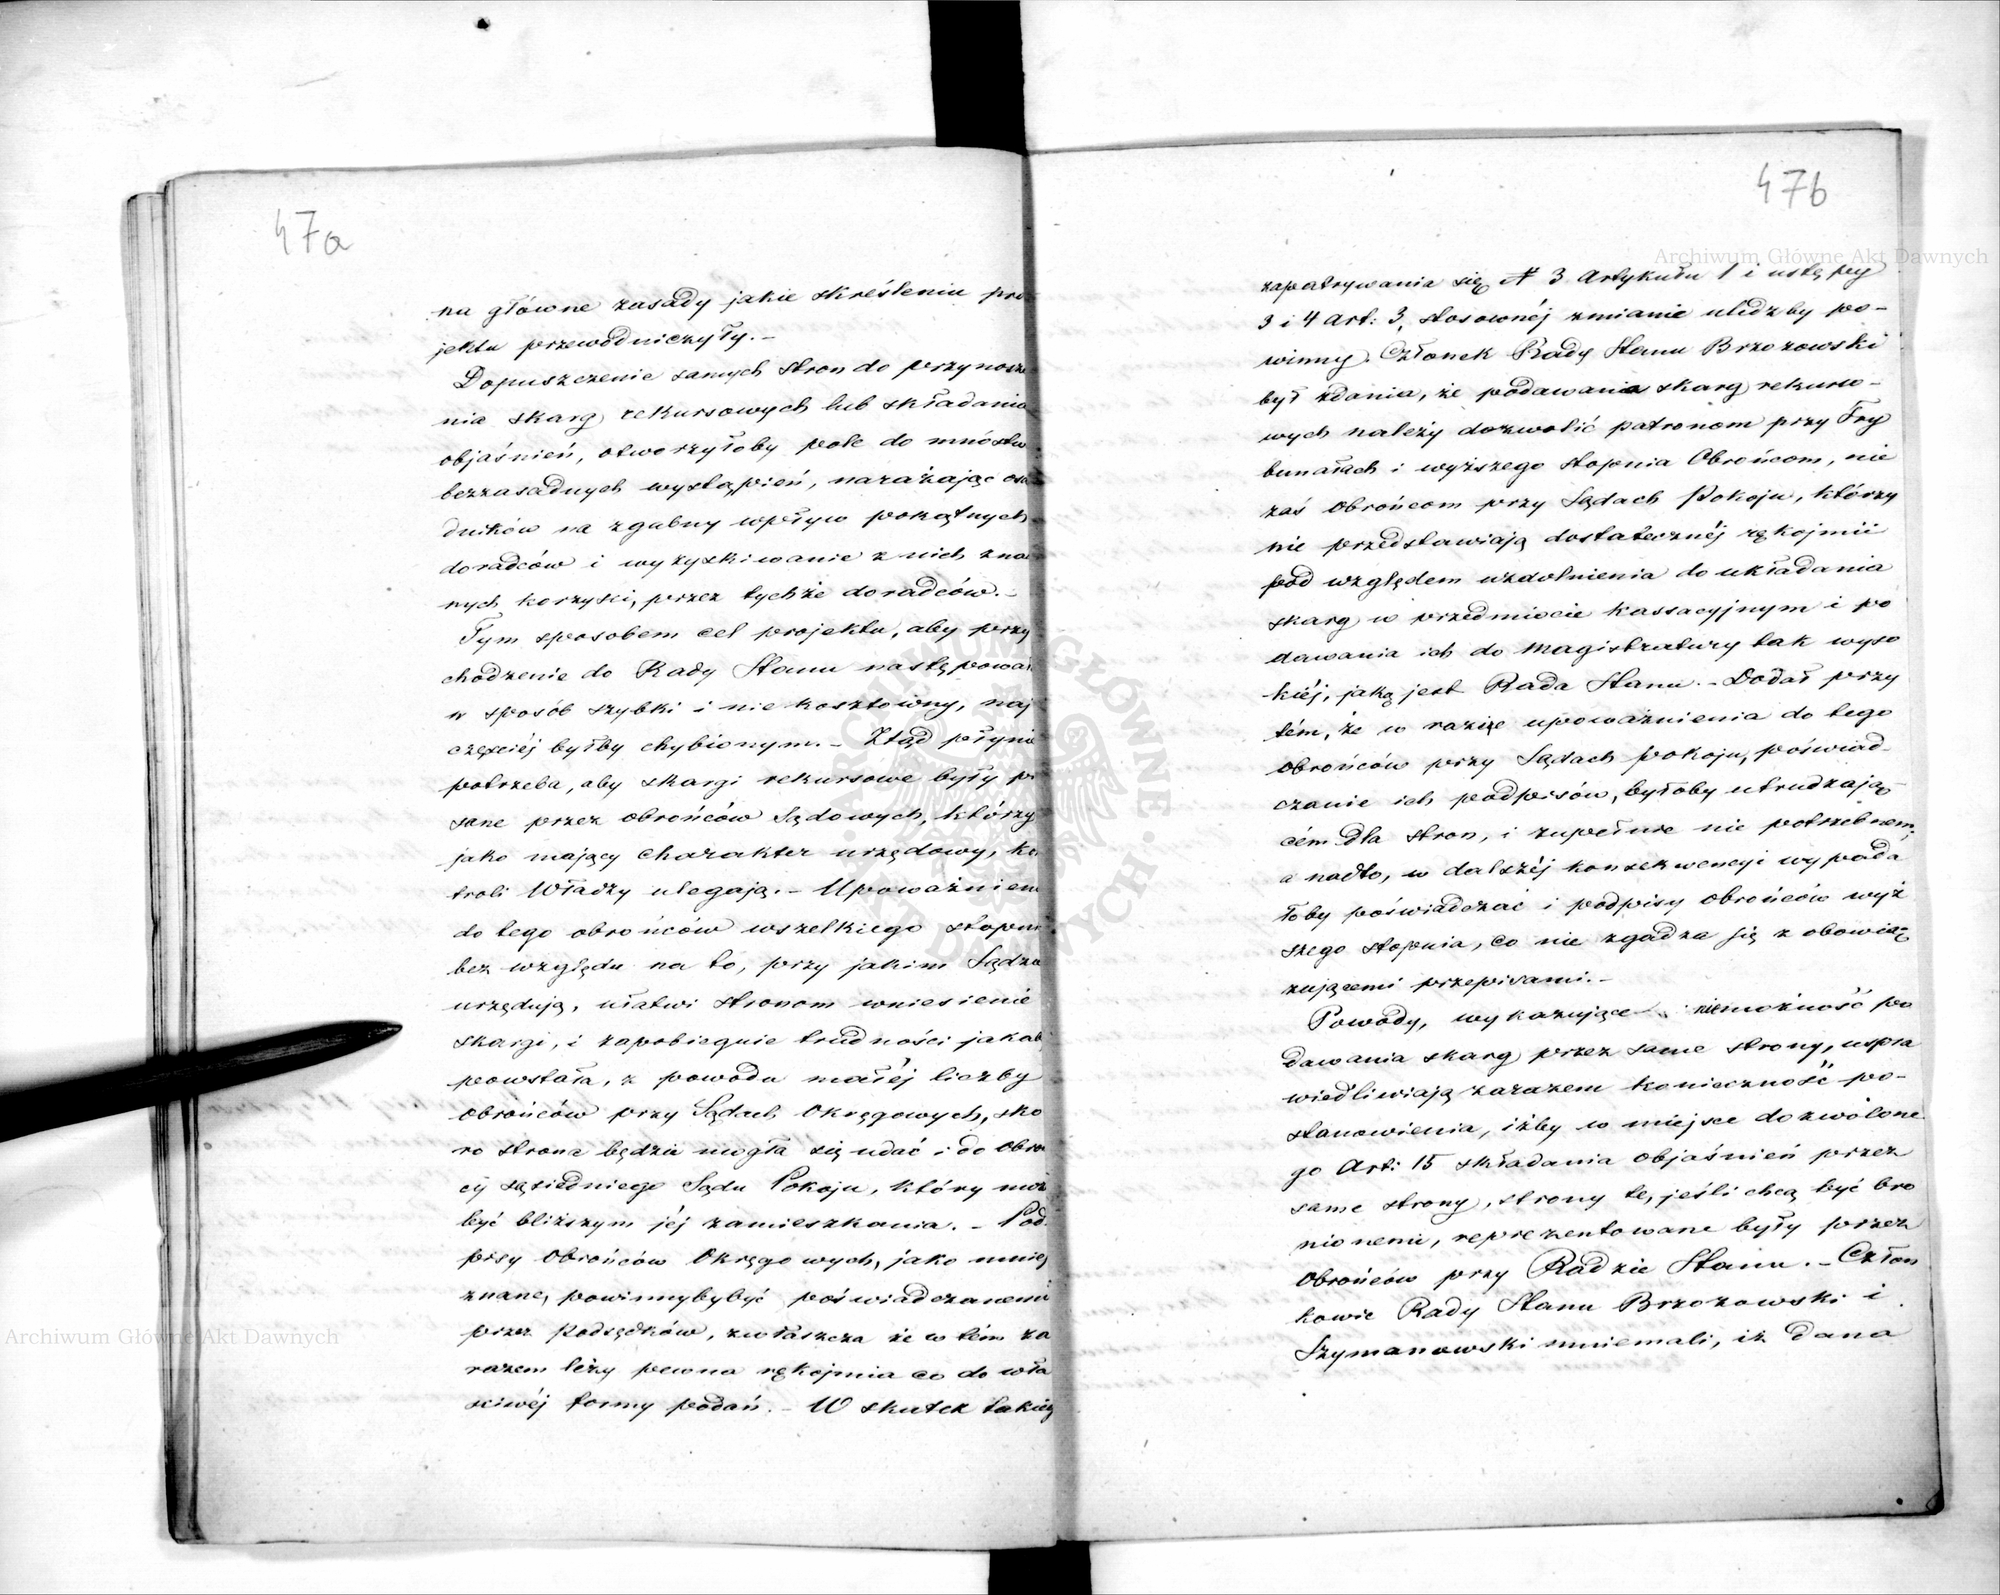 47a
na główne zasady jakie skreśleniu pro
jektu przewodniczyły.-
Dopuszczenie samych stron do przynosze
nia skarg rekursowych lub składania
objaśnień, otworzyłoby pole do mnóstw
bezzasadnych wystąpień, narażając osa
dników na zgubny wpływ pokątnych
doradców i wyzyskiwanie z nich zna
nych korzyści, przez tychże doradców.-
Tym sposobem cel projektu, aby przy
chodzenie do Rady Stanu następowa
w sposób szybki i nie kosztowny, naj
częściéj byłby chybionym.- Ztąd płynie
potrzeba, aby skargi rekursowe były pi
sane przez obrońców Sądowych, którzy
jako mający charakter urzędowy, ko
troli Władzy ulegają.- Upoważnien
do tego obrońców wszelkiego stopni
bez względu na to, przy jakim Sądzie
urzędują, ułatwi stronom wniesienie
skargi, i zapobiegnie trudności jakab
powstała, z powodu małéj liczby
obrońców przy Sądach Okręgowych, sko
ro strona będzie mogła się udać i do obro
cy sąsiedniego Sądu Pokoju, który moż
być bliższym jéj zamieszkania.- Pod-
pisy Obrońców Okręgowych, jako mniej
znane, powinnyby być poświadczanemi
przez Podsędków, zwłaszcza że w tém za
razem leży pewna rękojmia co do wła
ściwéj formy podań.- W skutek takieg
47b
zapatrywania się, N 3 Artykułu 1 i ustępy
3 i 4 Art: 3, stosownéj zmianie uledzby po-
winny. Członek Rady Stanu Brzozowski
był zdania, że podawania skarg rekurso-
wych należy dozwolić patronom przy Try
bunałach i wyższego stopnia Obrońcom, nie
zaś obrońcom przy Sądach Pokoju, którzy
nie przedstawiają dostatecznéj rękojmii
pod względem uzdolnienia do układania
skarg w przedmiocie kassacyjnym i po
dawania ich do magistratury tak wyso
kiéj, jaką jest Rada Stanu.- Dodał przy
tém, że w razie upoważnienia do tego
obrońców przy Sądach Pokoju, poświad-
czanie ich podpisów, byłoby utrudzają-
cém dla stron, i zupełnie nie potrzebnem;
a nadto, w dalszéj konsekwencyi wypada
łoby poświadczać i podpisy obrońców wyż
szego stopnia, co nie zgadza się z obowią
zującemi przepisami.-
Powody, wykazujące niemożność po
dawania skarg przez same strony, uspra
wiedliwiają zarazem konieczność po-
stanowienia, iżby w miejsce dozwolone
go Art: 15 składania objaśnień przez
same strony, strony te, jeśli chcą być bro
nionemi, reprezentowane były przez
Obrońców przy Radzie Stanu.- Człon
kowie Rady Stanu Brzozowski i
Szymanowski mniemali, iż dana
Archiwum Główne Akt Dawnych
Archiwum Główne Akt Dawnych
ARCHIWUM GŁÓWNE AKT DAWNYCH